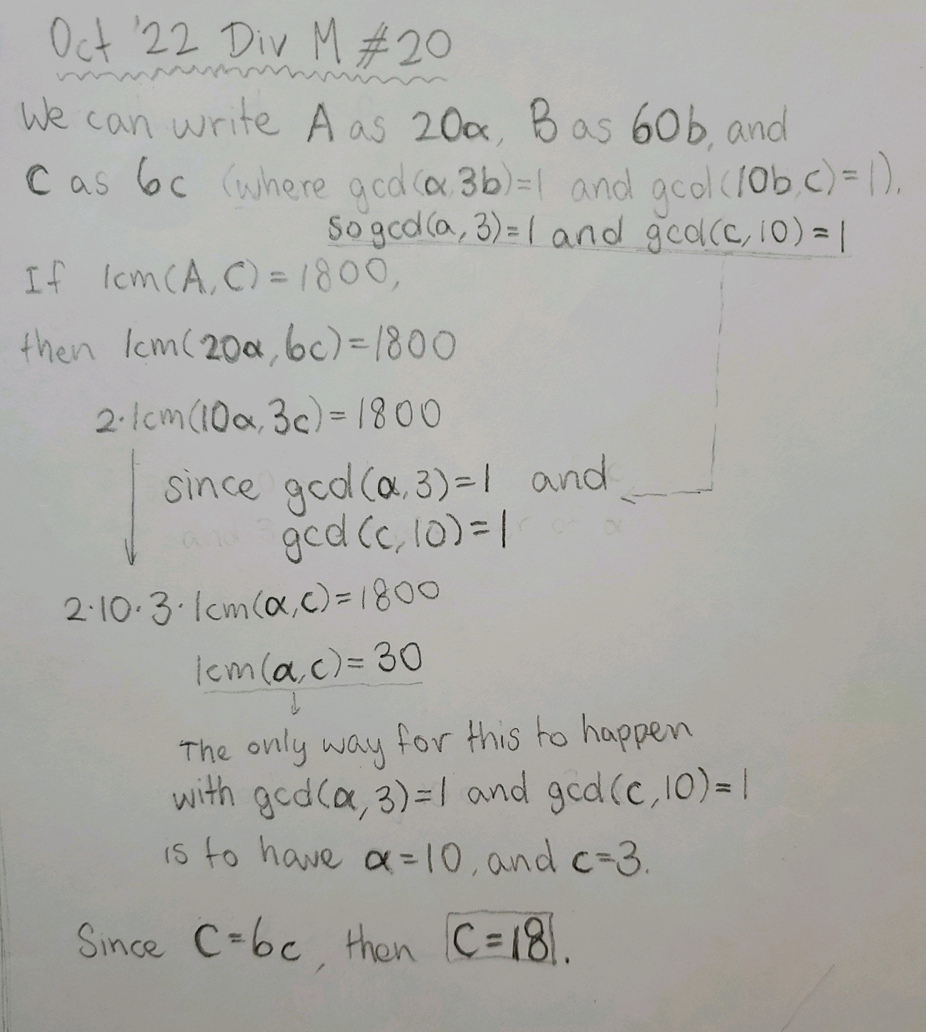 Oct '22 Div M #20
We can write A as 20a, B as 60b, and
C as 6c (where gcd(a,3b)=1 and gcd(10b,c)=1).
so gcd(a,3)=1 and gcd(c,10)=1
If lcm(A,C)=1800,
then lcm(20a,6c)=1800
2·lcm(10a,3c)=1800
since gcd(a,3)=1 and
gcd(c,10)=1
2·10·3·lcm(a,c)=1800
lcm(a,c)=30
The only way for this to happen
with gcd(a,3)=1 and gcd(c,10)=1
is to have a=10, and c=3.
Since C=6c, then C=18.